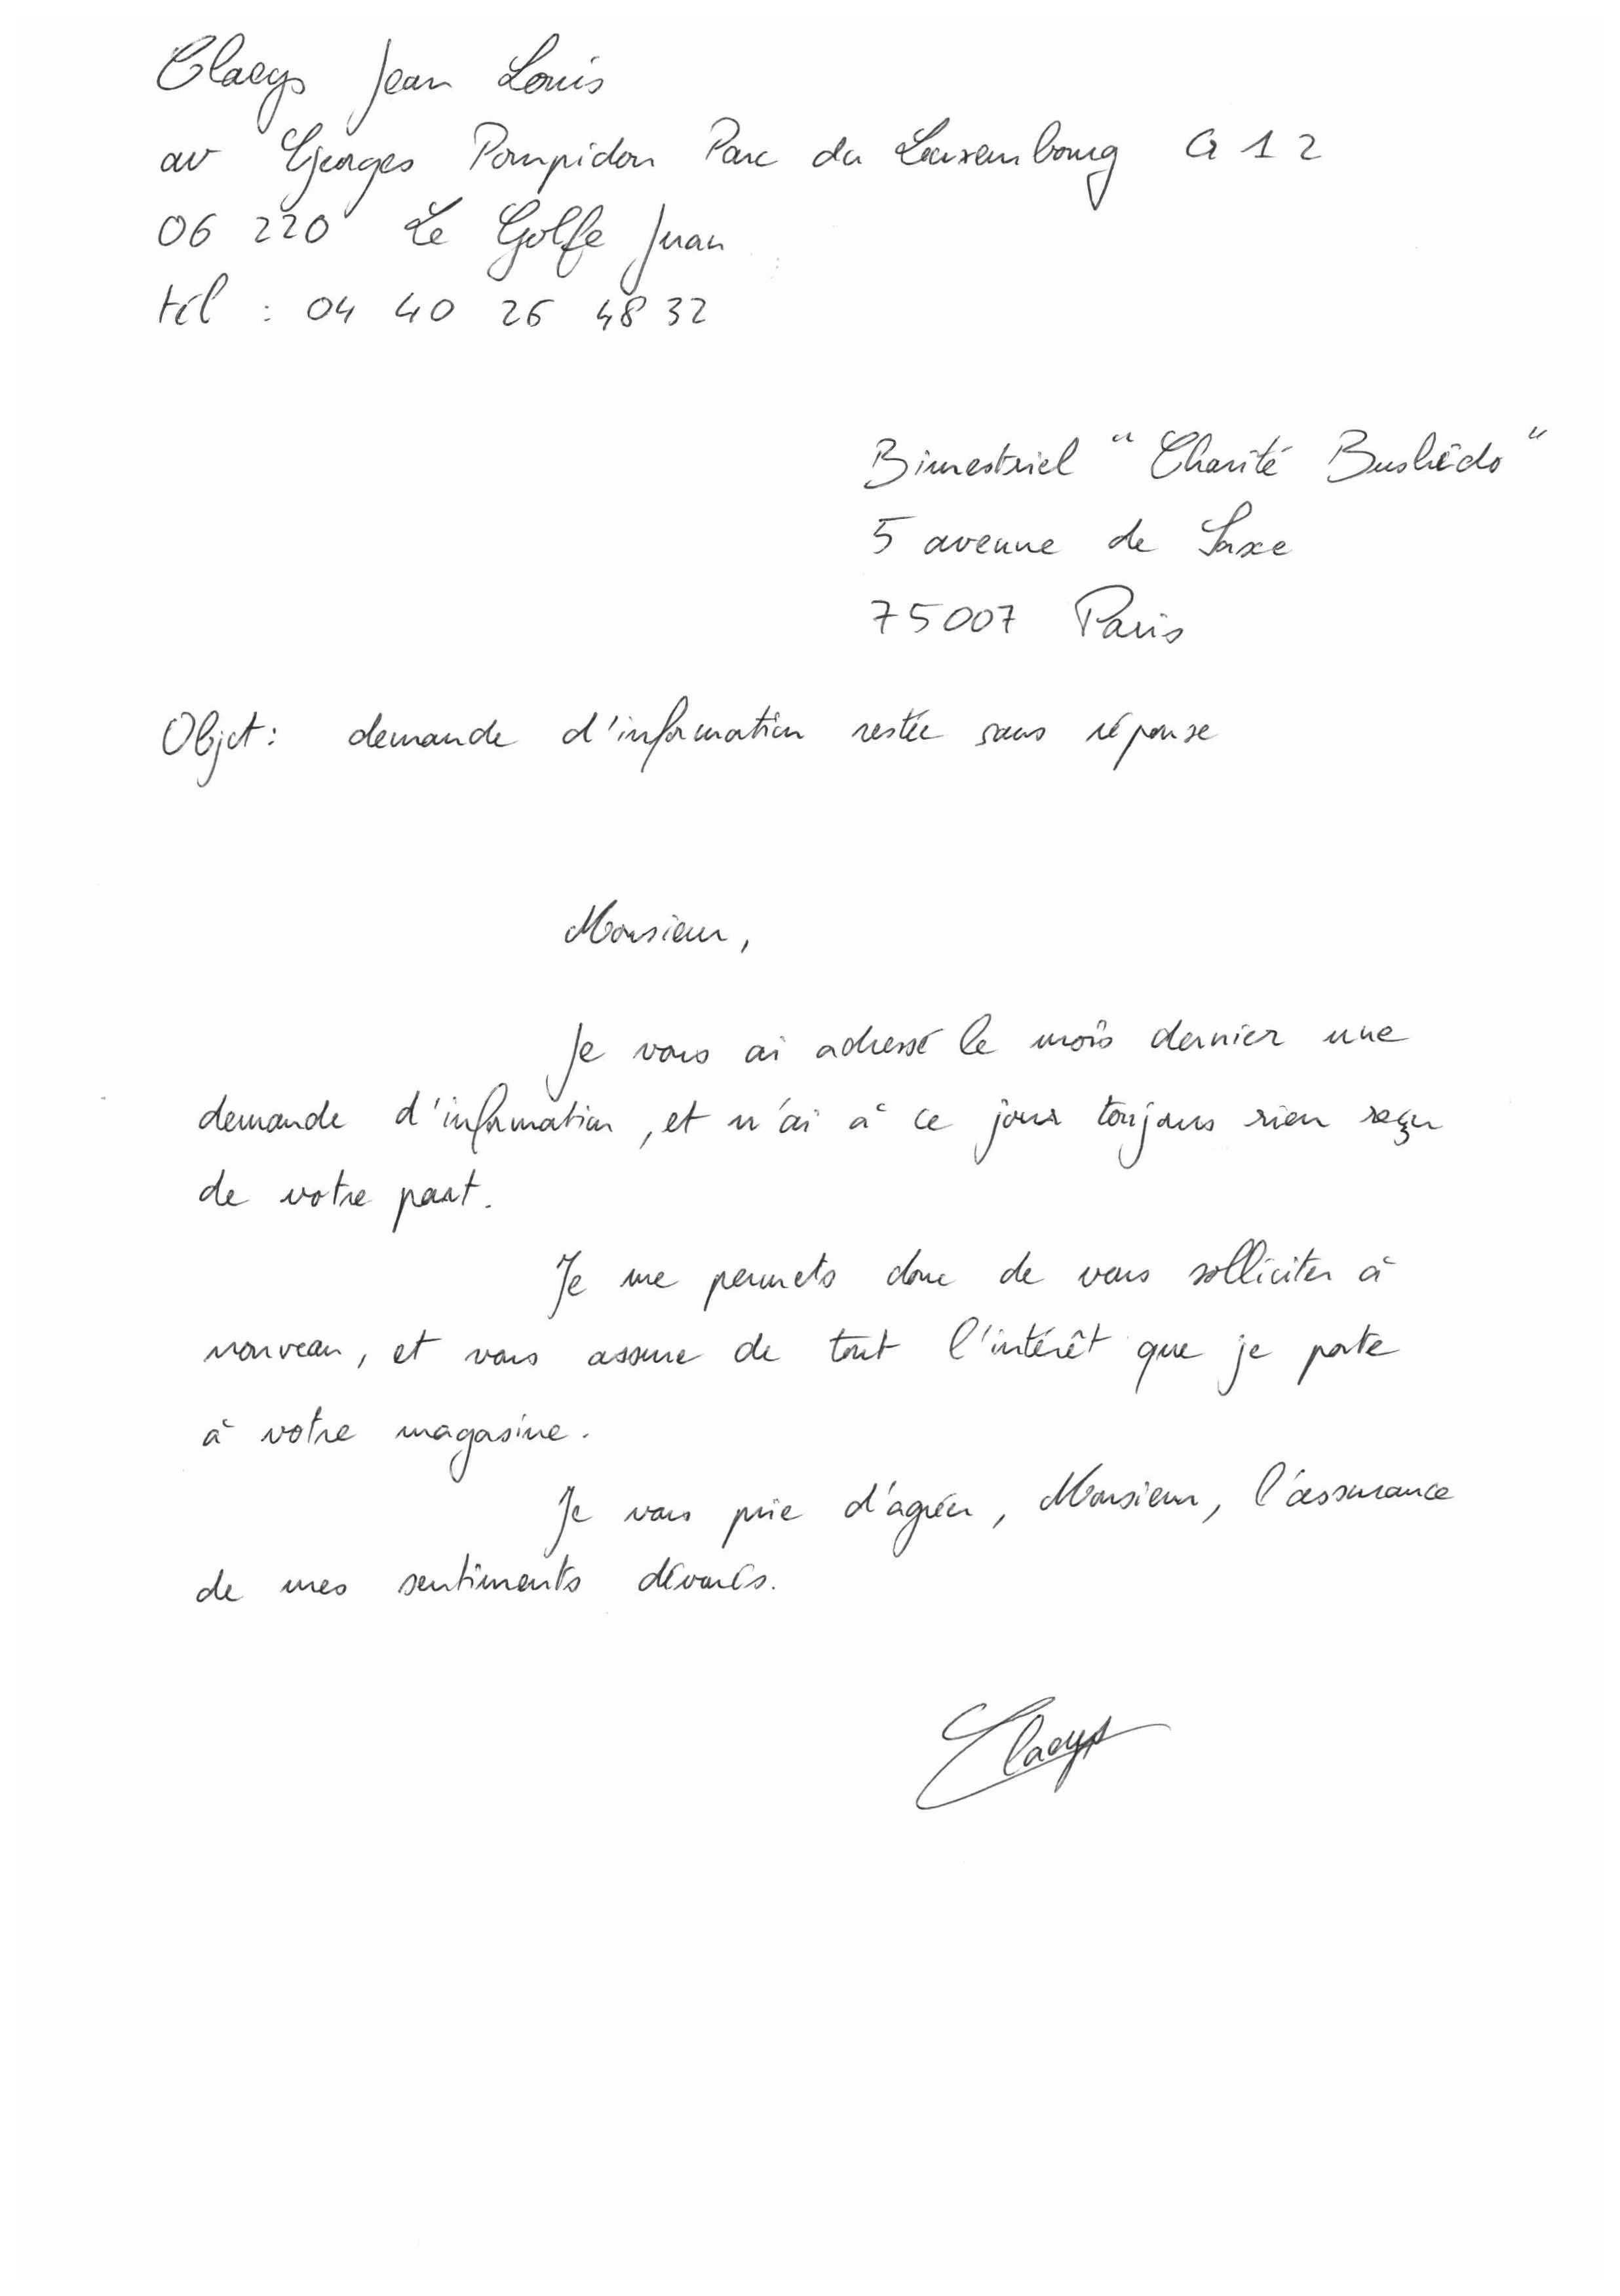 Claeys Jean Louis
av Georges Pompidou Parc du Luxembourg G 12
06 220 Le Golfe Juan
tél : 04 40 26 48 32
Bimestriel "Charité Bushido"
5 avenue de Saxe
75007 Paris
Objet : demande d'information restée sans réponse
Monsieur,
Je vous ai adressé le mois dernier une
demande d'information, et n'ai à ce jour toujours rien reçu
de votre part.
Je me permets donc de vous solliciter à
nouveau, et vous assure de tout l'intérêt que je porte
à votre magasine.
Je vous prie d'agréer, Monsieur, l'assurance
de mes sentiments dévoués.
Claeys